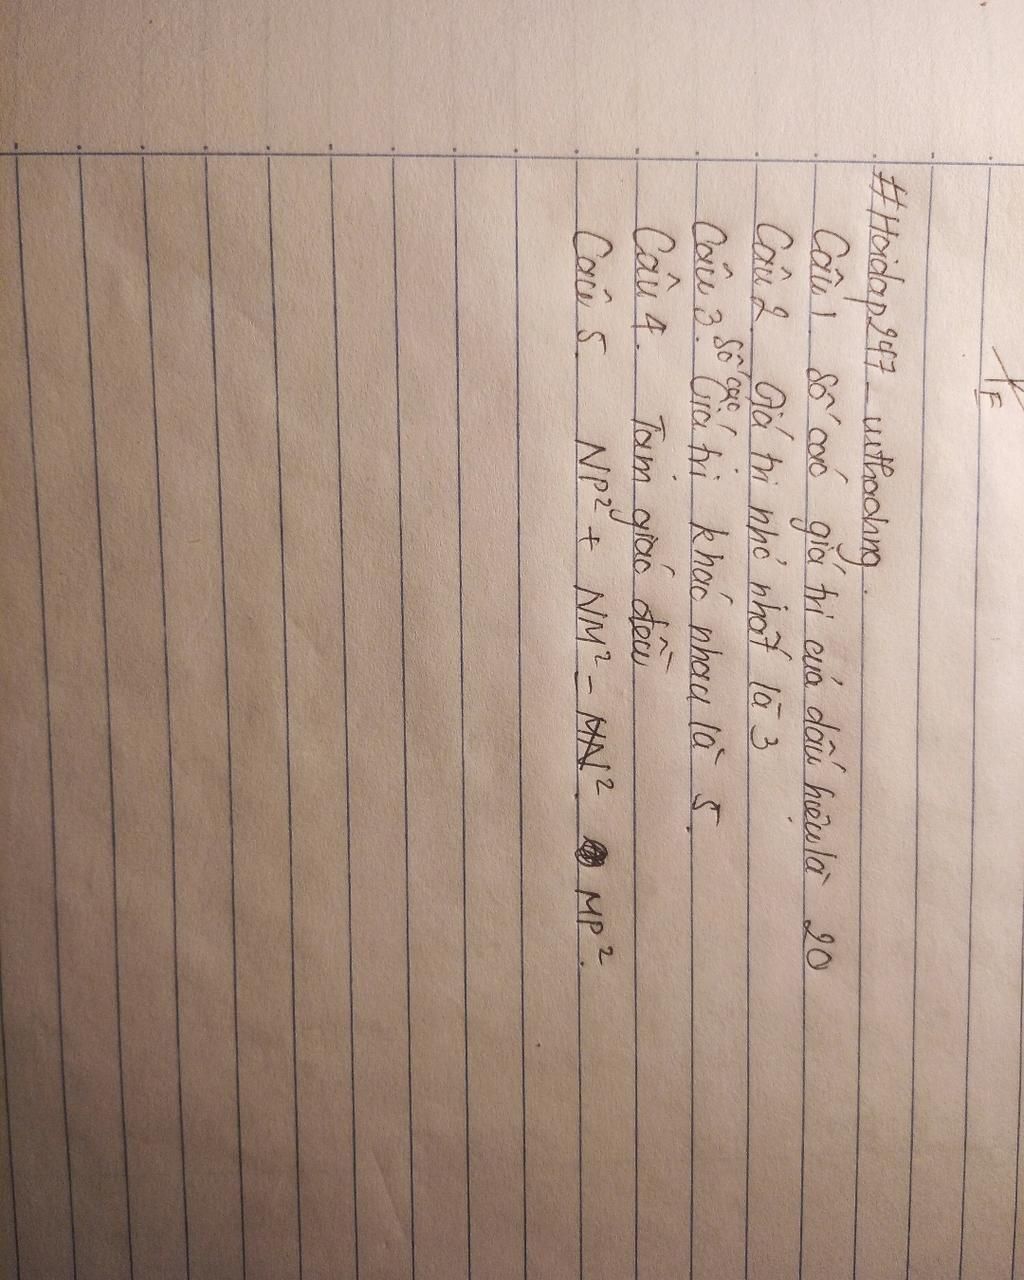 F
#Hoidap247_
Câu 1 Số các giá trị của dấu hiệu là 20
Câu 2 Giá trị nhỏ nhất là 3
Câu 3. Số các Giá trị khác nhau là 5.
Câu 4. Tam giác đều
Câu 5. NP² + NM² - MN². MP².